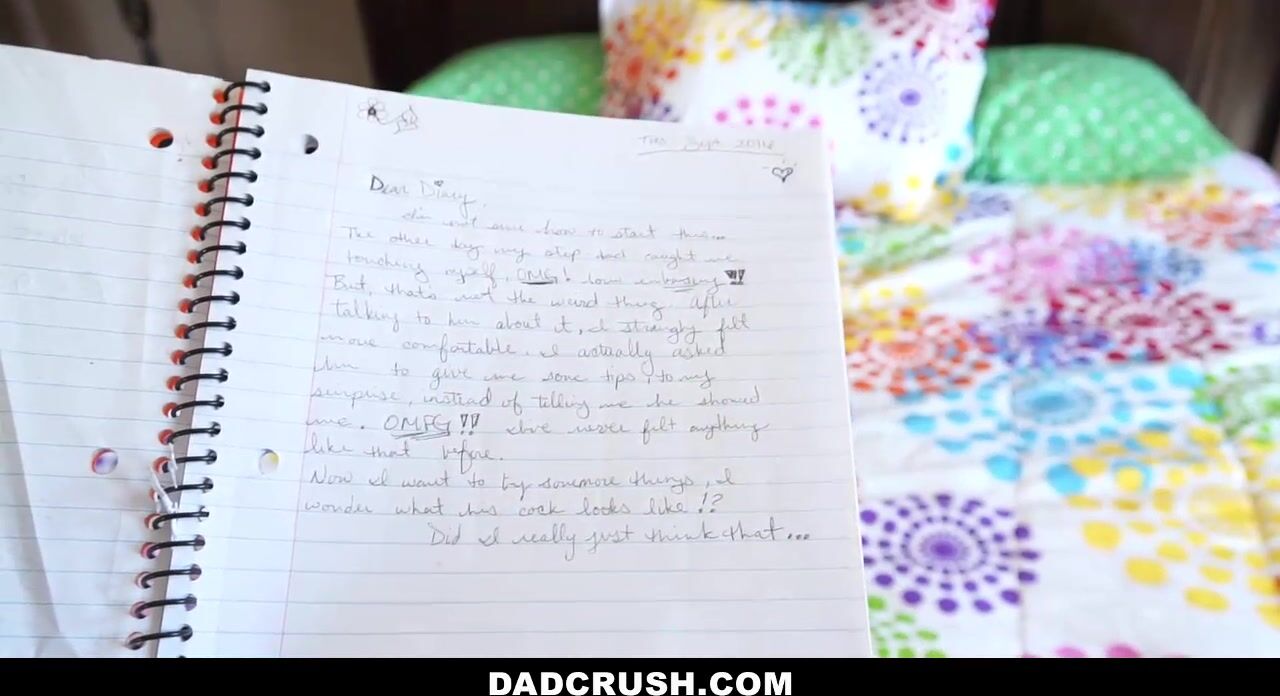 Tues Sept 2016
Dear Diary,
I'm not sure how to start this...
The other day my step dad caught me
touching myself, OMG! how embarasing !!!
But, that's not the weird thing. After
talking to him about it, I strangly felt
more comfortable. I actually asked
him to give me some tips, to my
surprise, instead of telling me he showed
me. OMFG!! I've never felt anything
like that before.
Now I want to try somemore things, I
wonder what his cock looks like!?
Did I really just think that...
DADCRUSH.COM